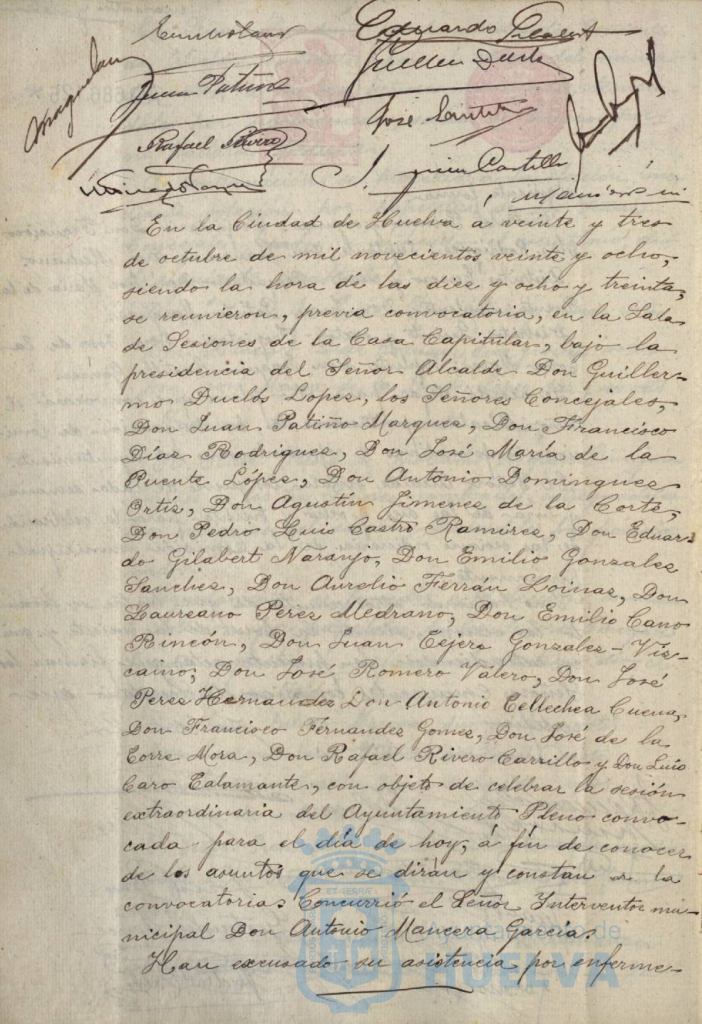 Eduardo Gilabert
Guillermo Duclós
Juan Patiño
José
Rafael Rivero
Castillo
En la Ciudad de Huelva a veinte y tres
de octubre de mil novecientos veinte y ocho,
siendo la hora de las diez y ocho y treinta,
se reunieron, previa convocatoria, en la Sala
de Sesiones de la Casa Capitular, bajo la
presidencia del Señor Alcalde Don Guiller-
mo Duclós Lopez, los Señores Concejales,
Don Juan Patiño Marquez, Don Francisco
Díaz Rodriguez, Don José María de la
Puente López, Don Antonio Dominguez
Ortíz, Don Agustín Jimenez de la Corte,
Don Pedro Luis Castro Ramirez, Don Eduar-
do Gilabert Naranjo, Don Emilio Gonzalez
Sanchez, Don Aurelio Ferrán Loinaz, Don
Laureano Pérez Medrano, Don Emilio Cano
Rincón, Don Juan Tejero Gonzalez-Viz-
caino, Don José Romero Valero, Don José
Perez Hernandez Don Antonio Tellechea Cuena,
Don Francisco Férnandez Gomez, Don José de la
Torre Mora, Don Rafael Rivero Carrillo y Don Luis
Caro Talamante, con objeto de celebrar la sesión
extraordinaria del Ayuntamiento Pleno convo-
cada para el día de hoy, á fin de conocer
de los asuntos que se dirán y constan en la
convocatoria. Concurrió el Señor Interventor mu-
nicipal Don Antonio Mancera García.
Han excusado su asistencia por enferme-
HUELVA